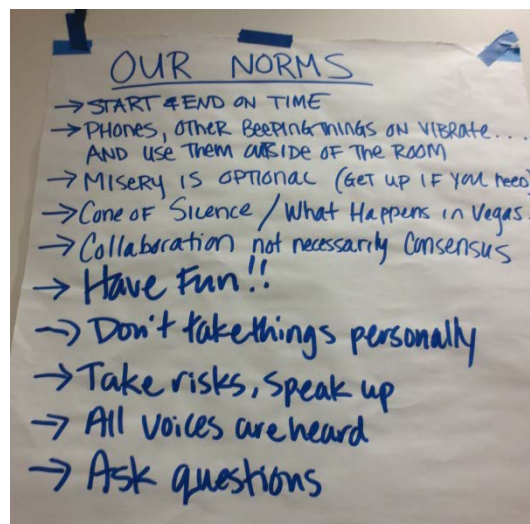 OUR NORMS
→ START & END ON TIME
→ PHONES, OTHER BEEPING THINGS ON VIBRATE...
AND USE THEM OUTSIDE OF THE ROOM
→ MISERY IS OPTIONAL (GET UP IF YOU NEED)
→ CONE OF SILENCE / WHAT HAPPENS IN VEGAS..
→ Collaboration not necessarily Consensus
→ Have Fun!!
→ Don't take things personally
→ Take risks, speak up
→ All voices are heard
→ Ask questions